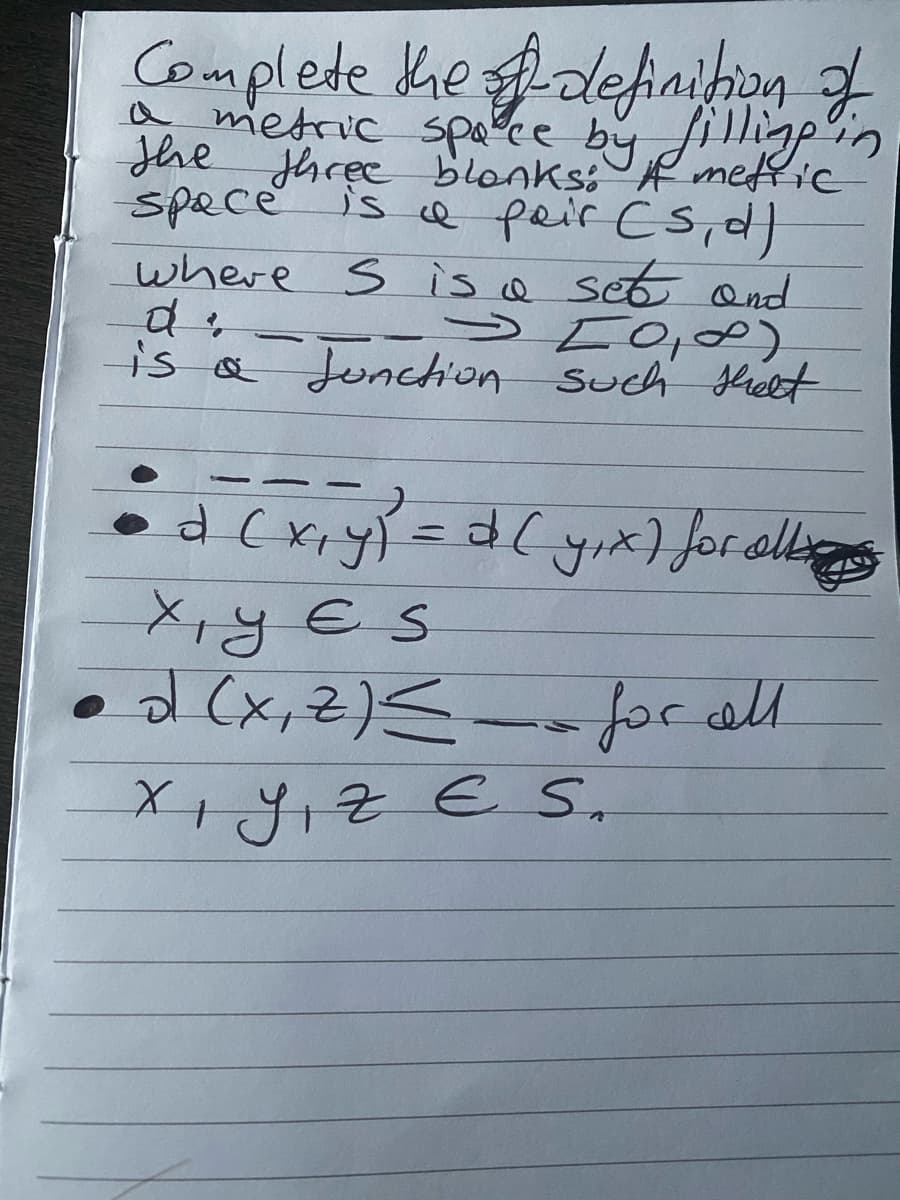 Complete the definition of
a metric space by filling in
the three blanks: A metric
space is a pair (S,d)
where S is a set and
d: ___ → [0,∞)
is a function such that
• ___,
• d(x,y) = d(y,x) for all
x,y ∈ S
• d(x,z) ≤ ___ for all
x,y,z ∈ S.